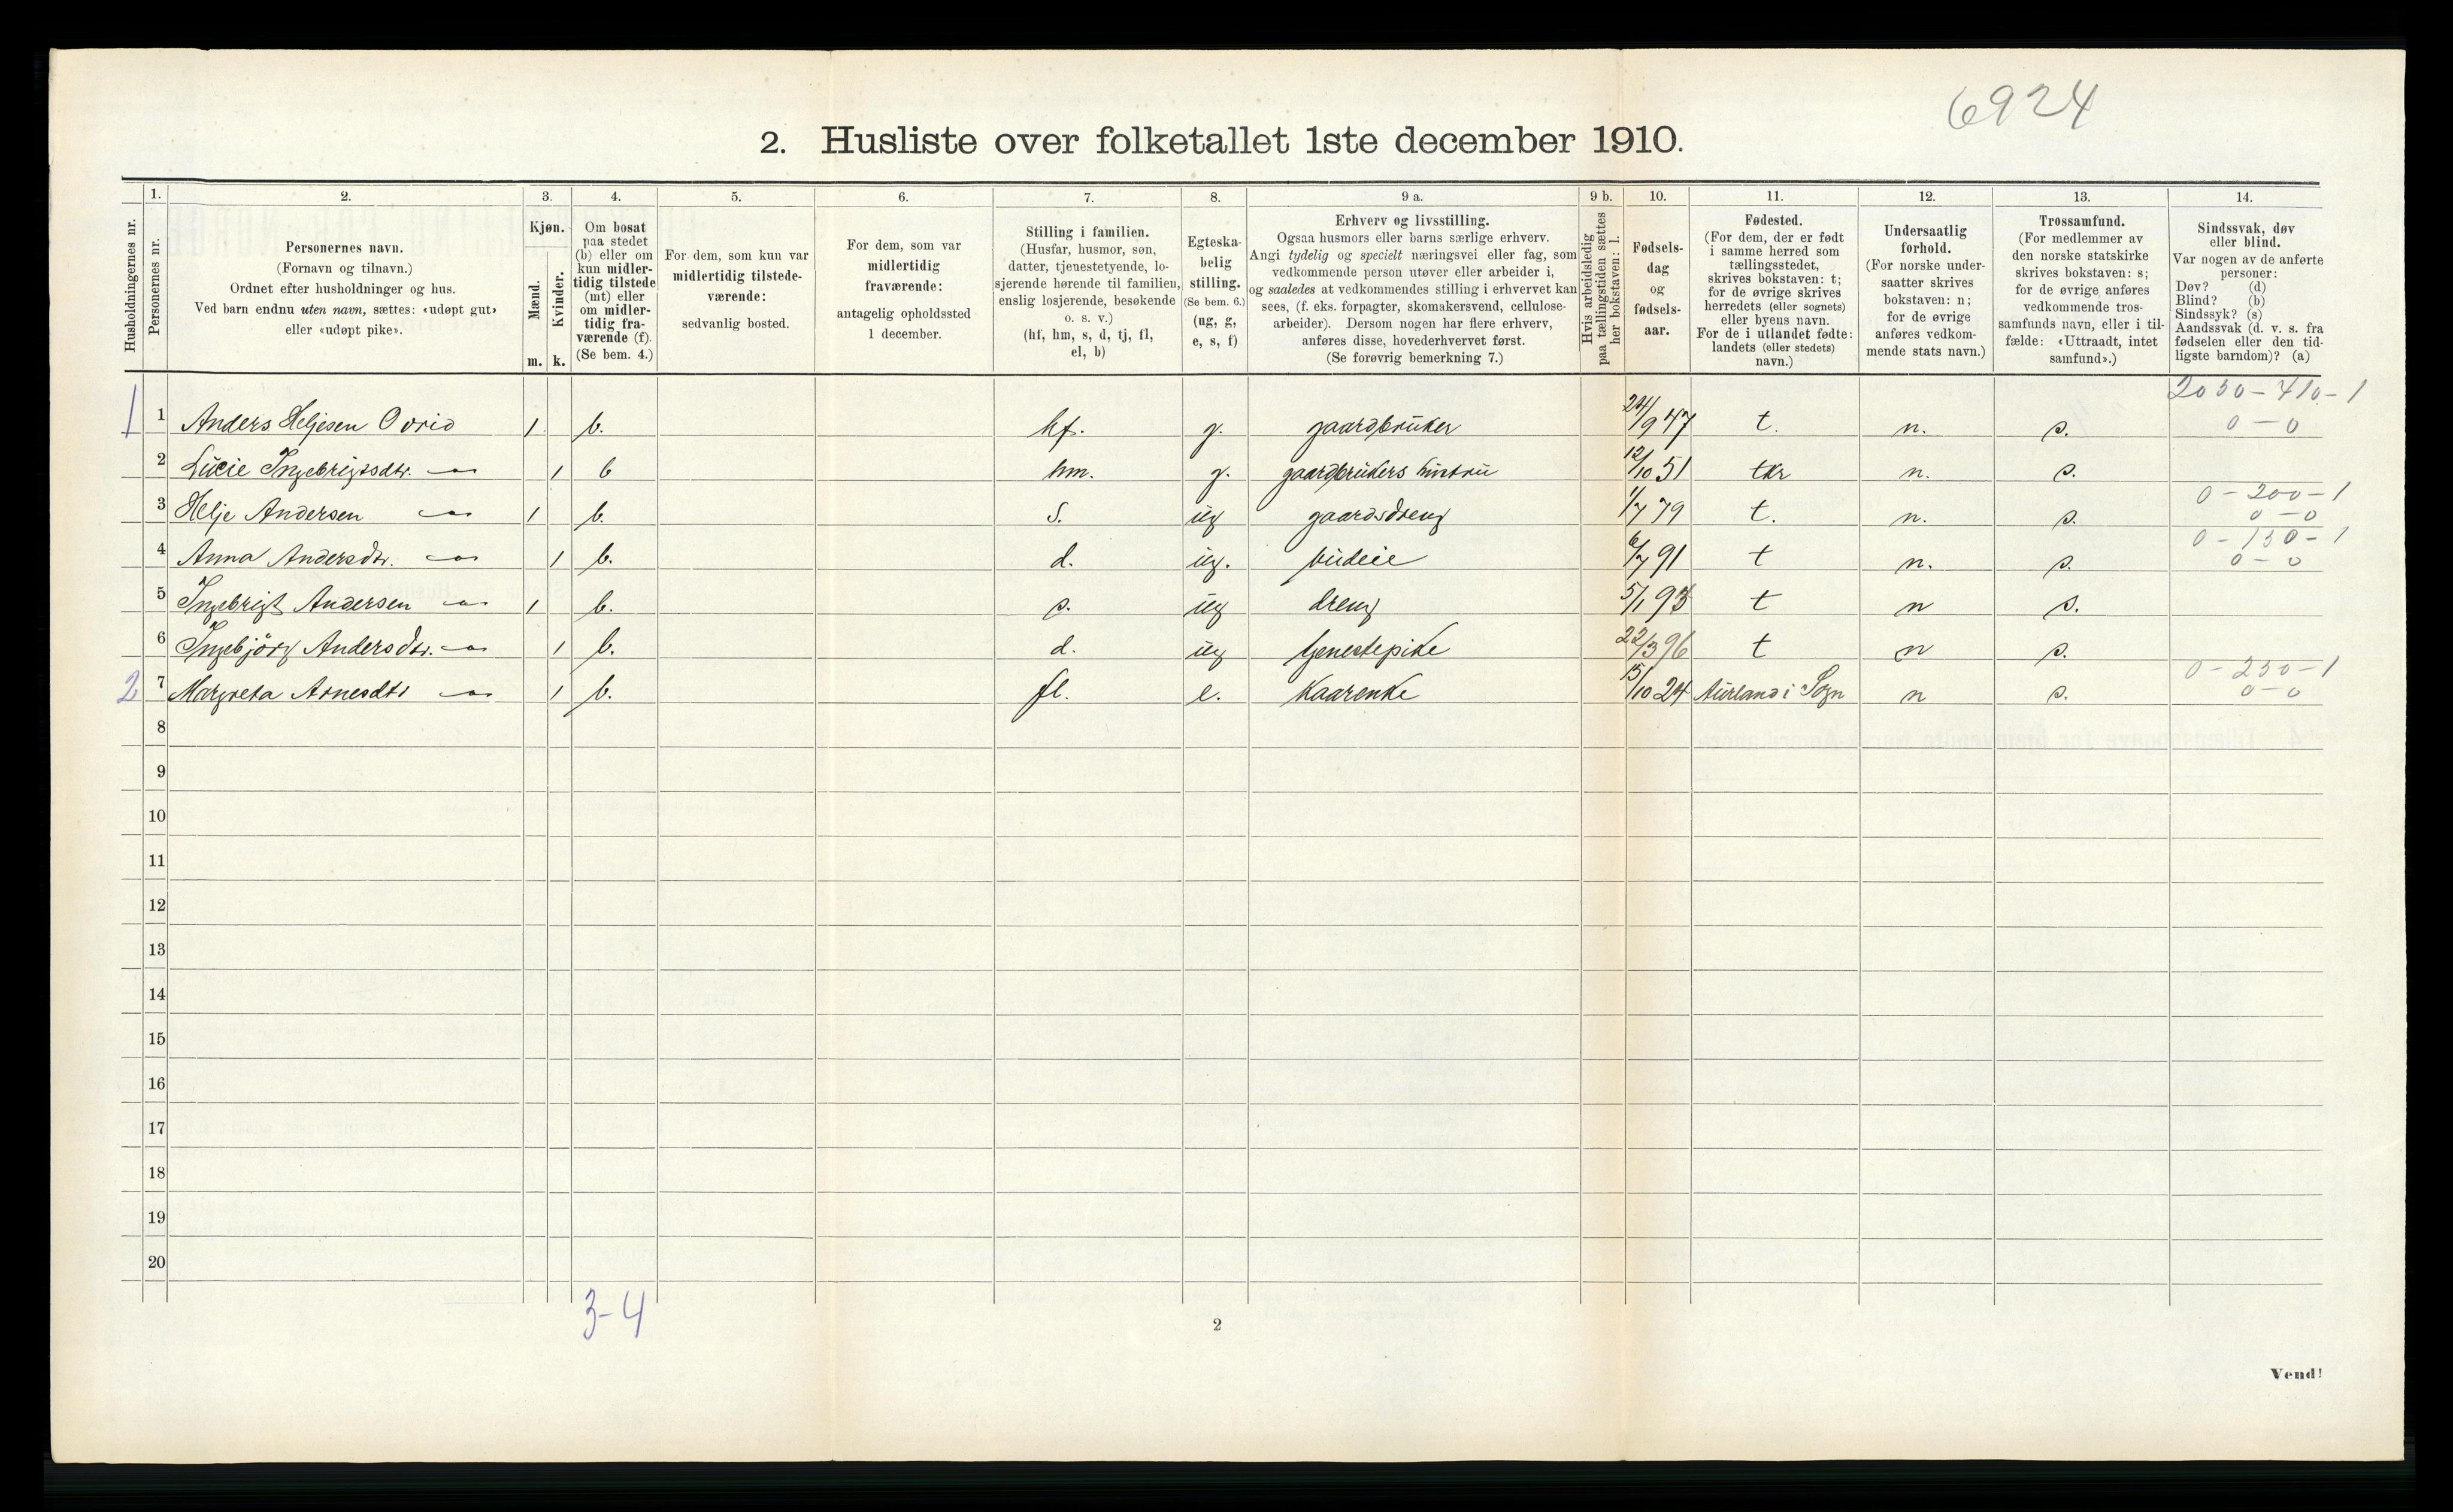 6924
2. Husliste over folketallet 1ste december 1910.
Husholdningernes nr.
1.
Personernes nr.
2.
Personernes navn.
(Fornavn og tilnavn.)
Ordnet efter husholdninger og hus.
Ved barn endnu uten navn, sættes: «udøpt gut»
eller «udøpt pike».
3.
Kjøn.
Mænd.
Kvinder.
m. k.
4.
Om bosat
paa stedet
(b) eller om
kun midler-
tidig tilstede
(mt) eller
om midler-
tidig fra-
værende (f).
(Se bem. 4.)
5.
For dem, som kun var
midlertidig tilstede-
værende:
sedvanlig bosted.
6.
For dem, som var
midlertidig
fraværende:
antagelig opholdssted
1 december.
7.
Stilling i familien.
(Husfar, husmor, søn,
datter, tjenestetyende, lo-
sjerende hørende til familien,
enslig losjerende, besøkende
o. s. v.)
(hf, hm, s, d, tj, fl,
el, b)
8.
Egteska-
belig
stilling.
(Se bem. 6.)
(ug, g,
e, s, f)
9 a.
Erhverv og livsstilling.
Ogsaa husmors eller barns særlige erhverv.
Angi tydelig og specielt næringsvei eller fag, som
vedkommende person utøver eller arbeider i,
og saaledes at vedkommendes stilling i erhvervet kan
sees, (f. eks. forpagter, skomakersvend, cellulose-
arbeider). Dersom nogen har flere erhverv,
anføres disse, hovederhvervet først.
(Se forøvrig bemerkning 7.)
9 b.
Hvis arbeidsledig
paa tællingstiden sættes
her bokstaven: l.
10.
Fødsels-
dag
og
fødsels-
aar.
11.
Fødested.
(For dem, der er født
i samme herred som
tællingsstedet,
skrives bokstaven: t;
for de øvrige skrives
herredets (eller sognets)
eller byens navn.
For de i utlandet fødte:
landets (eller stedets)
navn.)
12.
Undersaatlig
forhold.
(For norske under-
saatter skrives
bokstaven: n;
for de øvrige
anføres vedkom-
mende stats navn.)
13.
Trossamfund.
(For medlemmer av
den norske statskirke
skrives bokstaven: s;
for de øvrige anføres
vedkommende tros-
samfunds navn, eller i til-
fælde: «Uttraadt, intet
samfund».)
14.
Sindssvak, døv
eller blind.
Var nogen av de anførte
personer:
Døv? (d)
Blind? (b)
Sindssyk? (s)
Aandssvak (d. v. s. fra
fødselen eller den tid-
ligste barndom)? (a)
2030-410-1
1 1 Anders Heljesen Ovrid 1 b. hf. g. gaardbruker 24/9 47 t. n. s. 0-0
2 Lucie Ingebrigtsdtr. 1 b hm. g. gaardbrukers hustru 12/10 51 tkr n. s.
0-200-1
3 Helje Andersen 1 b. s. ug gaardsdreng 1/7 79 t. n. s. 0-0
0-130-1
4 Anna Andersdtr. 1 b. d. ug. budeie 6/7 91 t n. s. 0-0
5 Ingebrigt Andersen 1 b. s. ug dreng 5/1 93 t n s.
6 Ingebjörg Andersdtr. 1 b. d. ug tjenestepike 22/3 96 t n s.
0-230-1
2 7 Margreta Arnesdtr 1 b. fl. e. Kaarenke 15/10 24 Aurland i Sogn n s. 0-0
8
9
10
11
12
13
14
15
16
17
18
19
20
3-4
2
Vend!